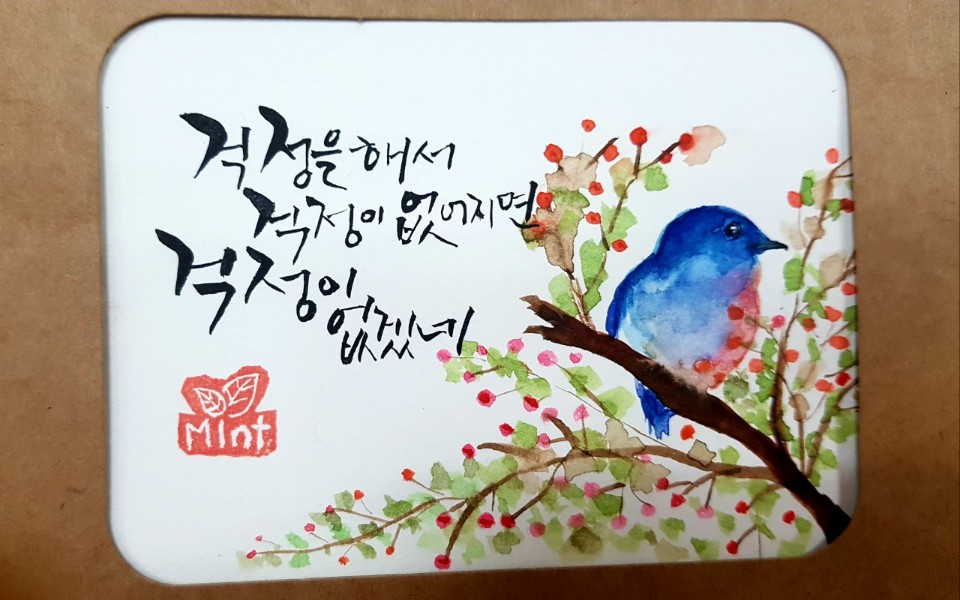 걱정을 해서
걱정이 없어지면
걱정이
없겠네
Mint